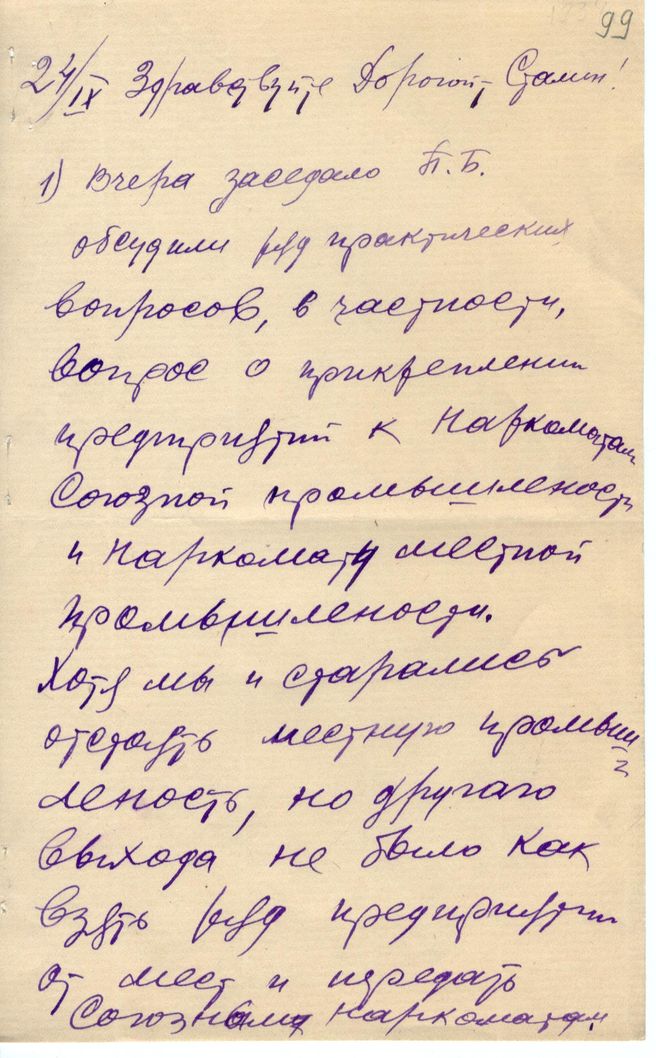 99
24/IX Здравствуйте Дорогой Сталин!
1) Вчера заседало П.Б.
обсудили ряд практических
вопросов, в частности,
вопрос о прикреплении
предприятий к Наркоматам
Союзной промышлености
и Наркомату местной
промышлености.
Хотя мы и старались
отстоять местную промыш
леность, но другаго
выхода не было как
взять ряд предприятий
от мест и передать
Союзном Наркоматам